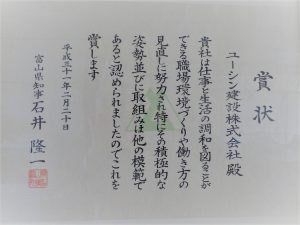 賞状
ユーシン建設株式会社 殿
貴社は仕事と生活の調和を図ることが
できる職場環境づくりや働き方の
見直しに努力され特にその積極的な
姿勢並びに取組みは他の模範で
あると認められましたのでこれを
賞します
平成三十一年二月二十日
富山県知事 石井隆一